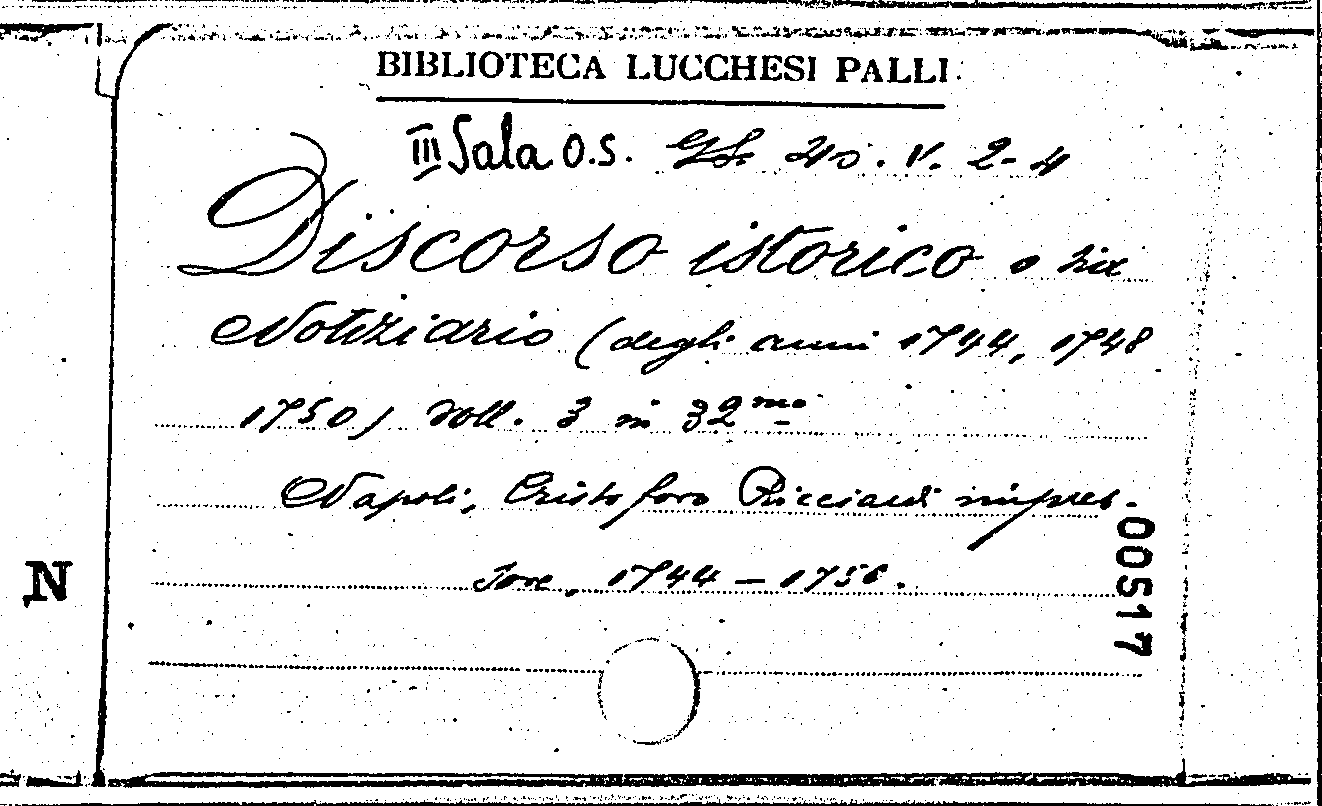 BIBLIOTECA LUCCHESI PALLI
III Sala O.S. V. 2-4
Discorso istorico o sia
Notiziario (degli anni 1744, 1748
1750) Voll. 3 in 32mo
Napoli, Cristoforo Ricciardi impres-
sore, 1744 - 1750.
00517
N